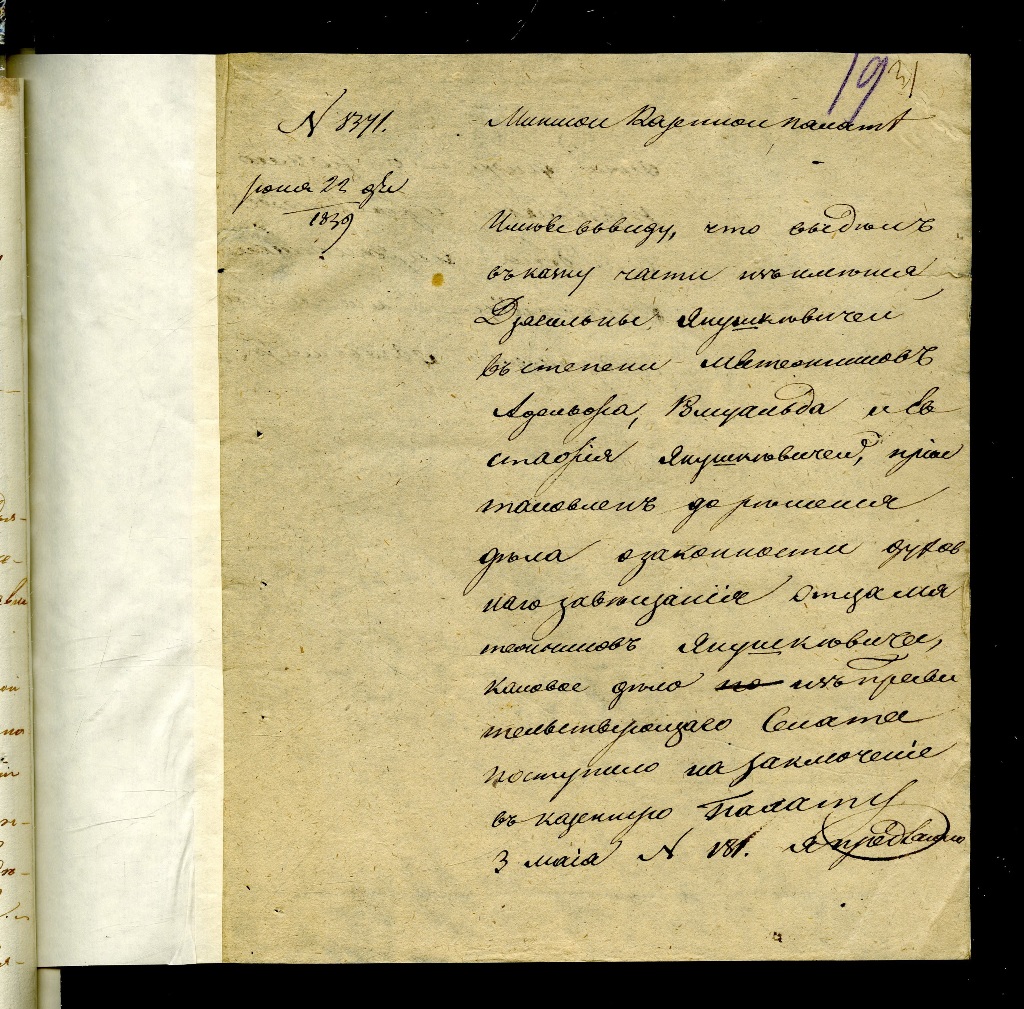 19
31
N 8371.
июня 22 дня
1839
Минской Казенной палатѣ
Имѣя въ виду, что выдѣлъ
въ казну части изъ имѣнія
Дзясельпы Янушкѣвичей
въ степени малолѣтнихъ
Адольфа, Витуальда и Ев
стафія Янушкѣвичей, пріос
тановленъ до рѣшенія
дѣла о законности духов
наго завѣщанія отца мя
тежниковъ Янушкѣвичей,
каковое дѣло изъ Прави
тельствующаго Сената
поступило на заключеніе
въ казенную Палату
3 маія N 181. Я предлагаю